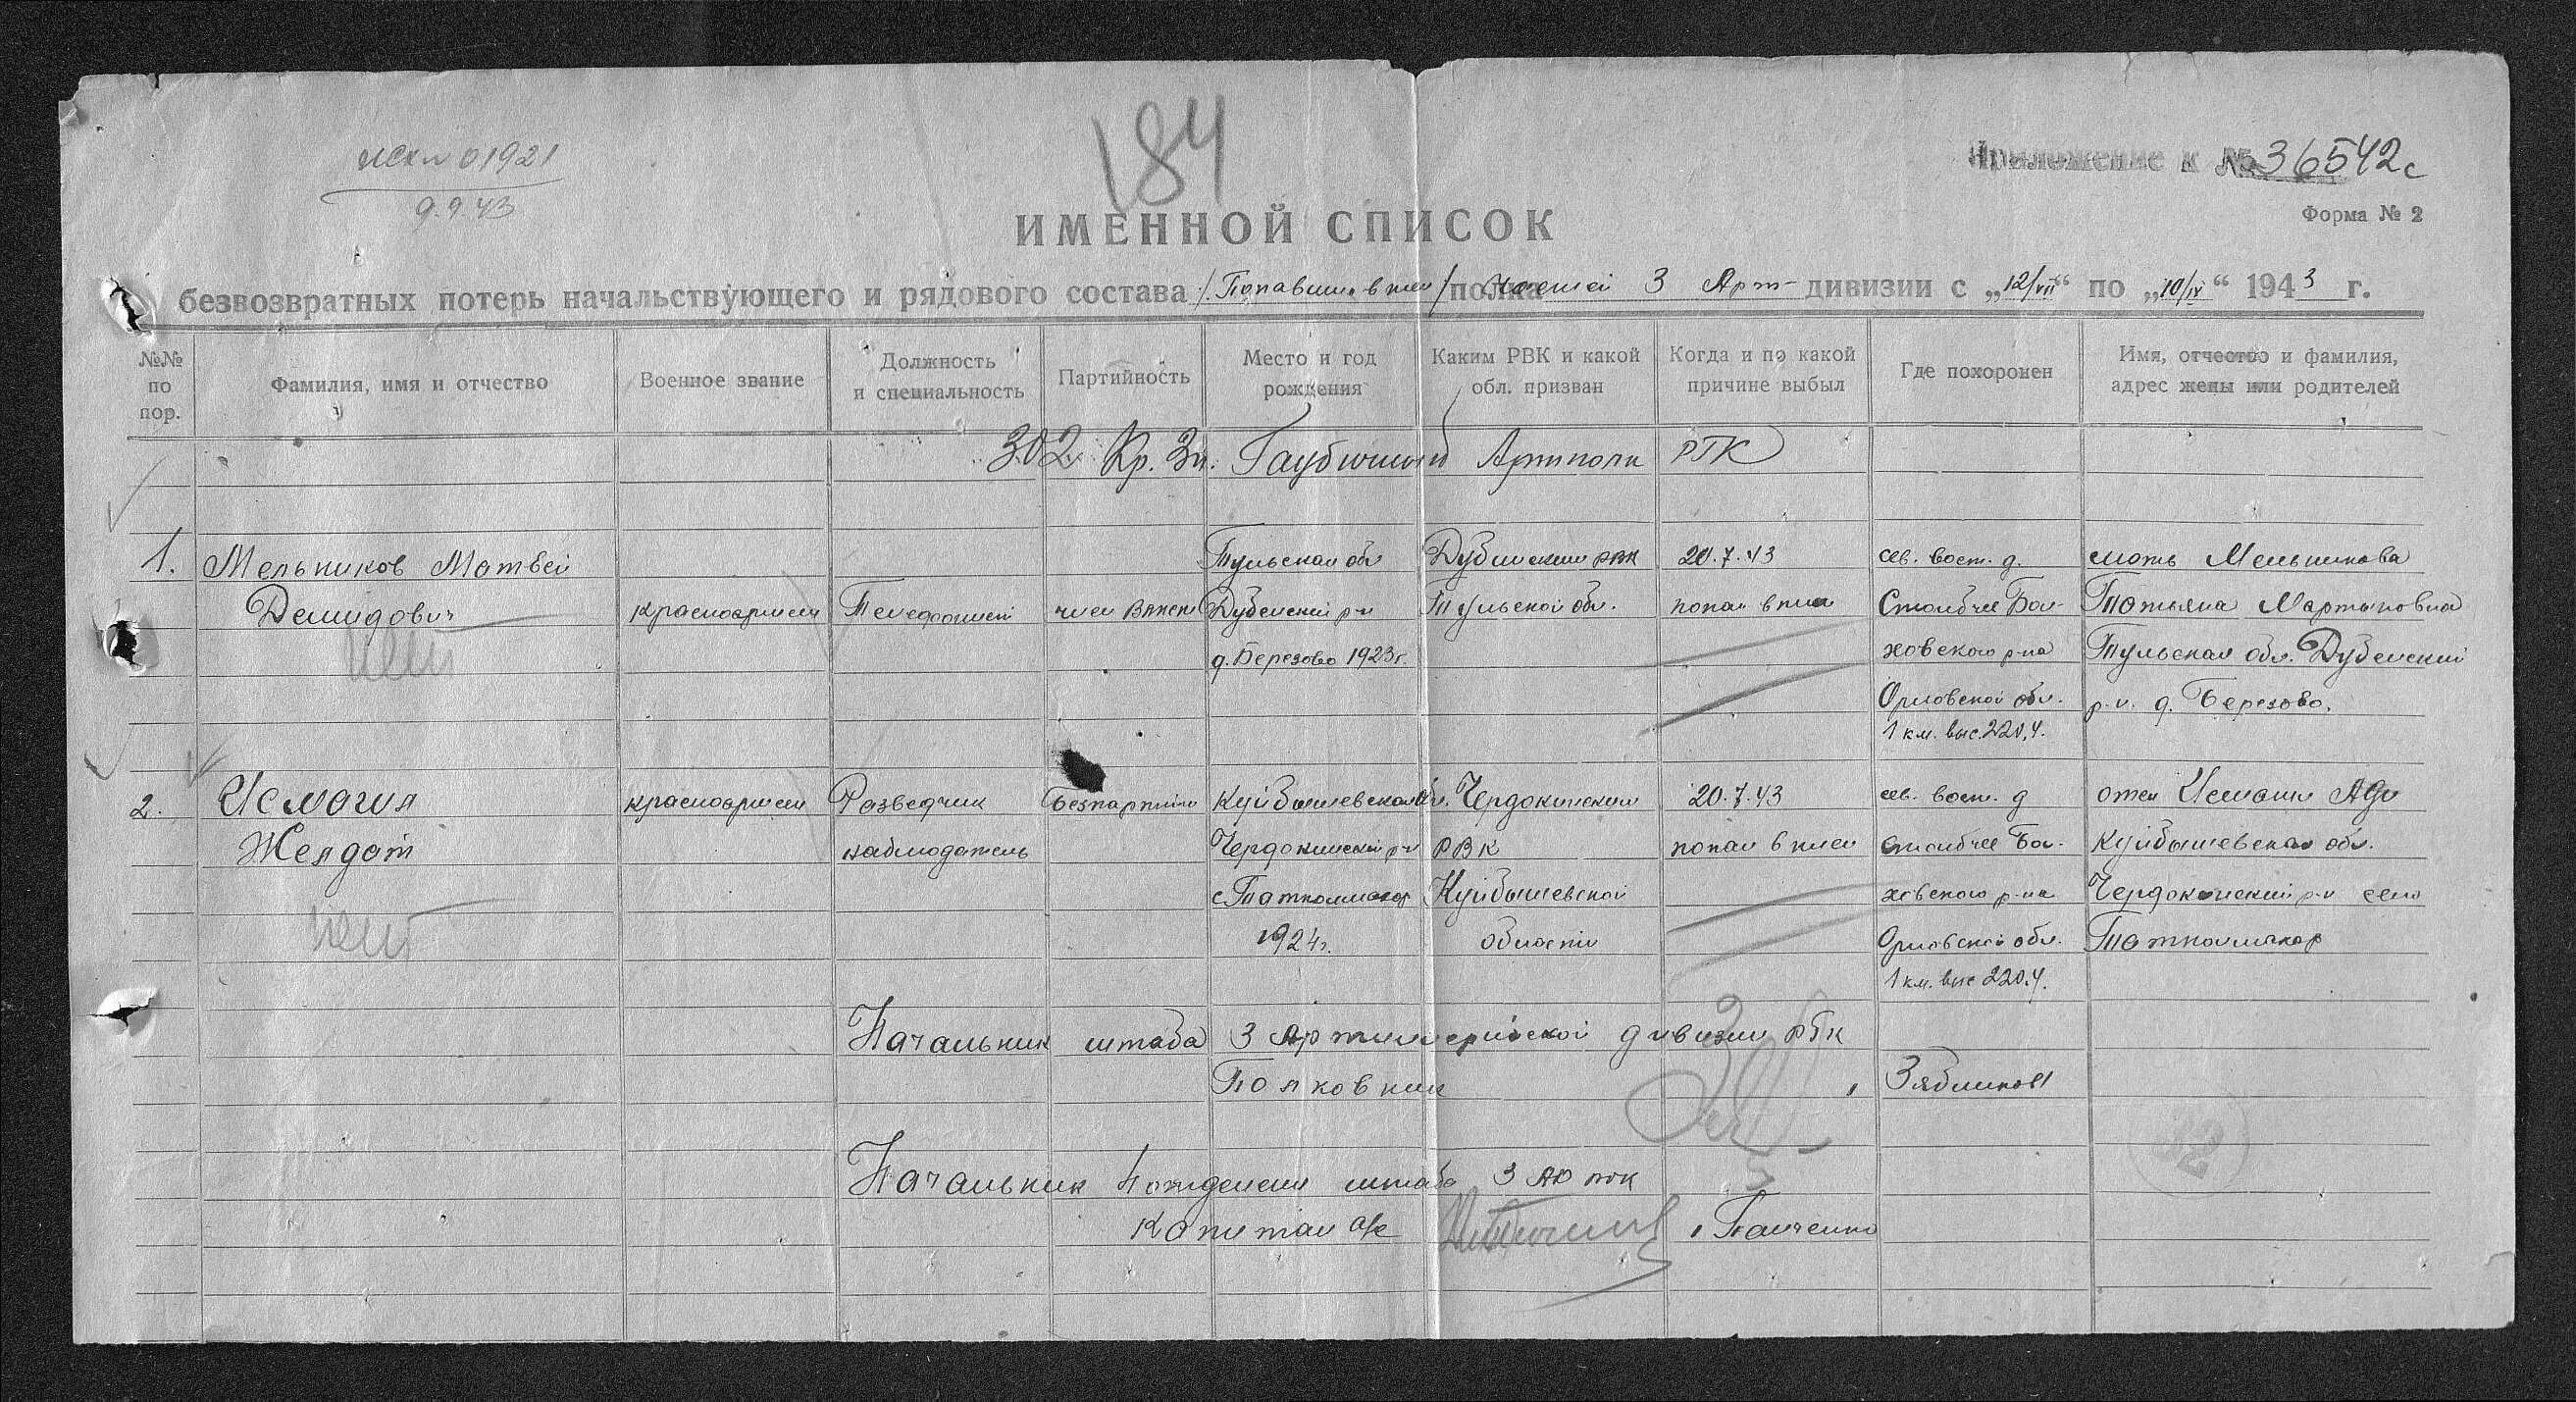 184
исх № 01921
9.9.43
Приложение к № 36542с
Форма № 2
ИМЕННОЙ СПИСОК
безвозвратных потерь начальствующего и рядового состава /Попавших в плен/ полка частей 3 Арт- дивизии с „12/VII“ по „10/IX“ 1943 г.
№№ по пор.
Фамилия, имя и отчество
Военное звание
Должность и специальность
Партийность
Место и год рождения
Каким РВК и какой обл. призван
Когда и по какой причине выбыл
Где похоронен
Имя, отчество и фамилия, адрес жены или родителей
302 Кр. Зн. Гаубичный Артполк РГК
1. Мельников Матвей Тульская обл Дубенским РВК 20.7.43 сев. вост. д. мать Мельникова
Демидович красноармеец Телефонист член ВЛКСМ Дубенский р-н Тульской обл. попал в плен Столбчее Бол- Татьяна Мартыновна
д. Березово 1923г. ховского р-на Тульская обл. Дубенский
Орловской обл. р-н. д. Березово.
1 км. выс. 220,4.
2. Исмагил красноармеец Разведчик Безпартийн Куйбышевская обл. Чердоклинским 20.7.43 сев. вост. д отец
Желдат наблюдатель Чердоклинский р-н РВК попал в плен Столбчее Бол- Куйбышевская обл.
Куйбышевской ховского р-на Чердоклинский р-н село
1924г. области Орловской обл.
1 км. выс 220.4.
Начальник штаба 3 Артиллерийской дивизии РГК
Полковник / Зябликов/
Начальник 4 отделения штаба 3 АД РГК
Капитан а/с / Панченко